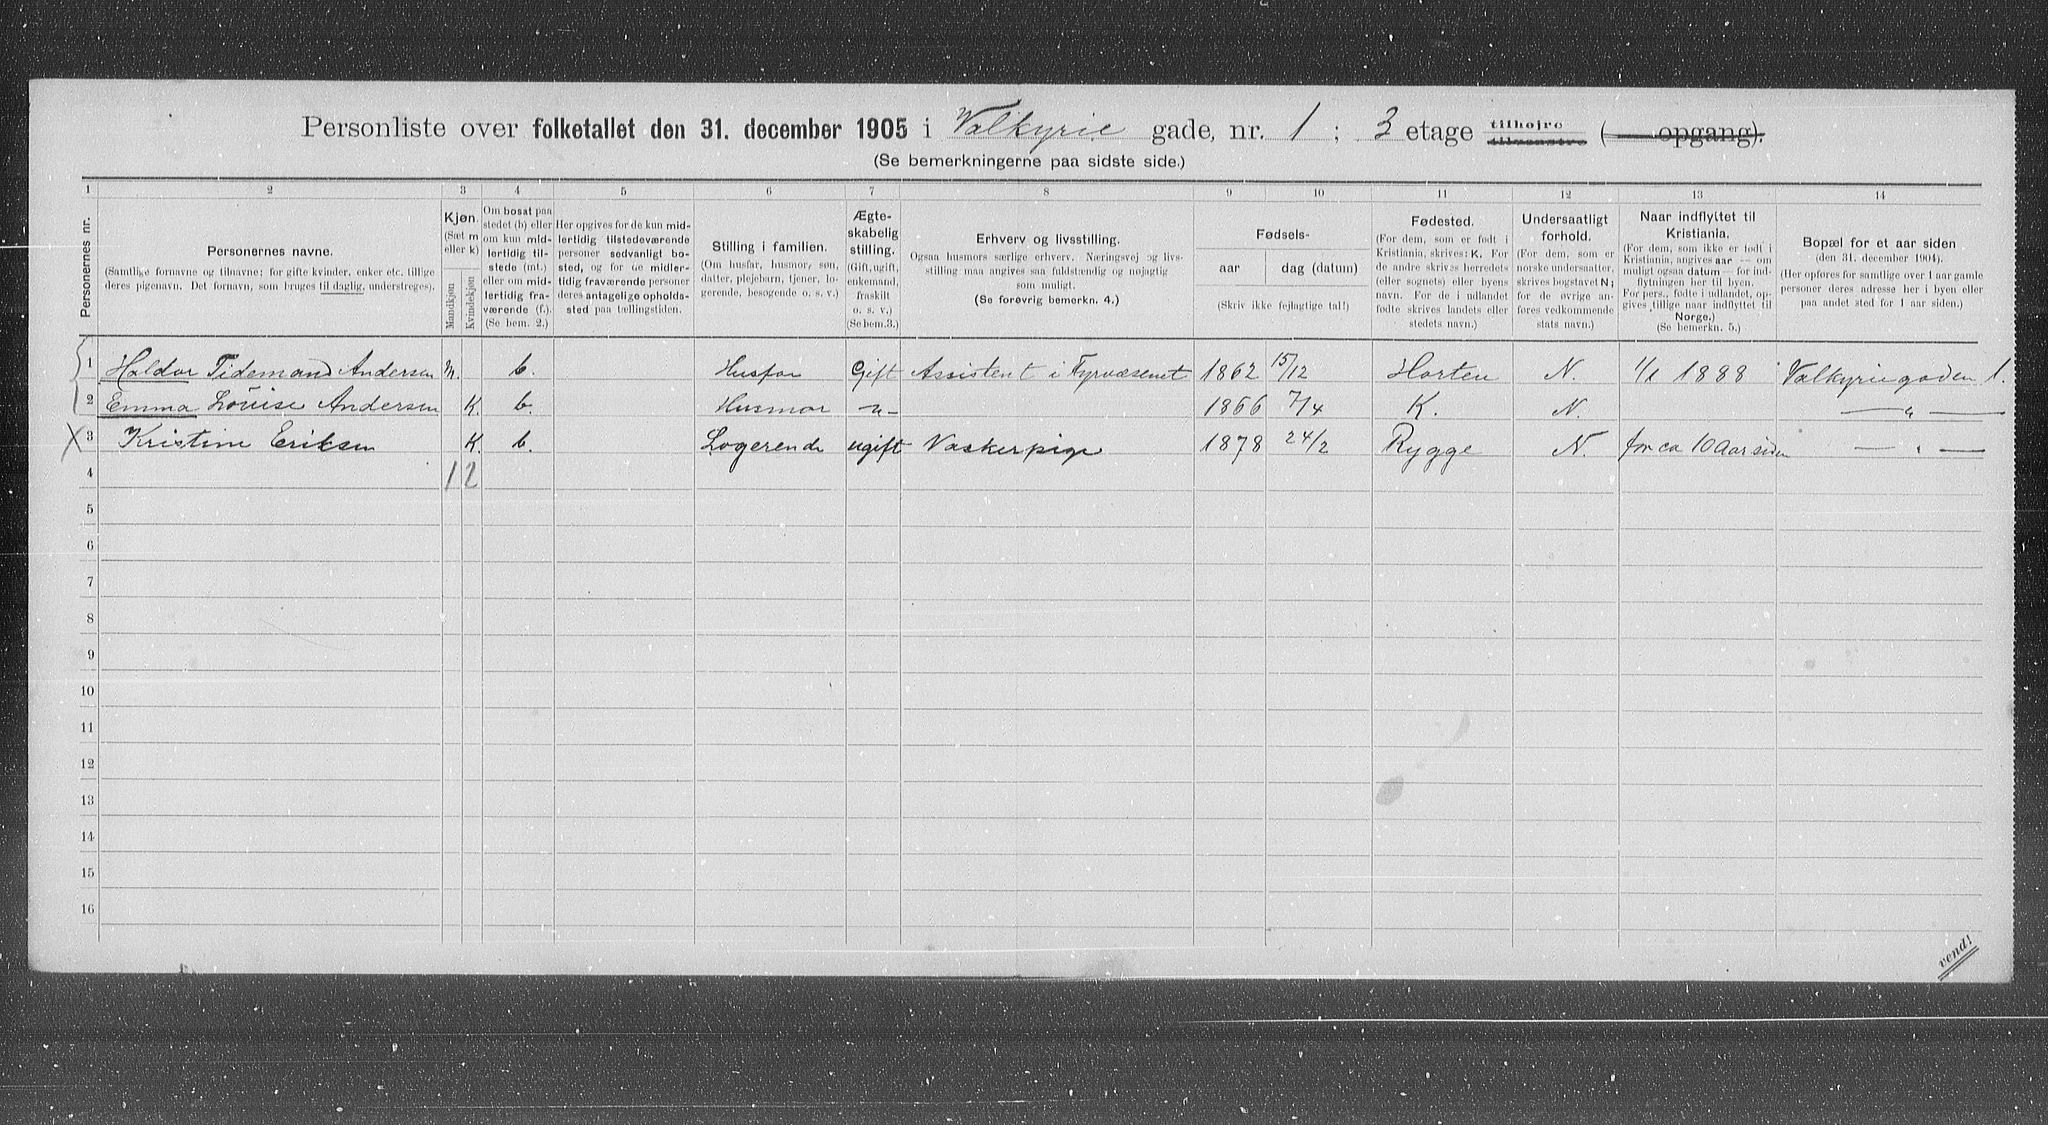 Personliste over folketallet den 31. december 1905 i Valkyrie gade, nr. 1 ; 3 etage tilhøjre tilvenstre ( opgang).
(Se bemerkningerne paa sidste side.)
1 2 3 4 5 6 7 8 9 10 11 12 13 14
Personernes nr.
Personernes navne.
(Samtlige fornavne og tilnavne; for gifte kvinder, enker etc. tillige
deres pigenavn. Det fornavn, som bruges til daglig, understreges).
Kjøn.
(Sæt m
eller k)
Mandkjøn
Kvindekjøn
Om bosat paa
stedet (b) eller
om kun mid-
lertidig til-
stede (mt.)
eller om mid-
lertidig fra-
værende (f.).
(Se bem. 2.)
Her opgives for de kun mid-
lertidig tilstedeværende
personer sedvanligt bo-
sted, og for de midler-
tidig fraværende personer
deres antagelige opholds-
sted paa tællingstiden.
Stilling i familien.
(Om husfar, husmor, søn,
datter, plejebarn, tjener, lo-
gerende, besøgende o. s. v.)
Ægte-
skabelig
stilling.
(Gift, ugift,
enkemand,
fraskilt
o. s. v.)
(Se bem. 3.)
Erhverv og livsstilling.
Ogsaa husmors særlige erhverv. Næringsvej og livs-
stilling maa angives saa fuldstændig og nøjagtig
som muligt.
(Se forøvrig bemerkn. 4.)
Fødsels-
aar
dag (datum)
(Skriv ikke fejlagtige tal!)
Fødested.
(For dem, som er født i
Kristiania, skrives: K. For
de andre skrives herredets
(eller sognets) eller byens
navn. For de i udlandet
fødte skrives landets eller
stedets navn.)
Undersaatligt
forhold.
(For dem, som er
norske undersaatter,
skrives bogstavet N;
for de øvrige an-
føres vedkommende
stats navn.)
Naar indflyttet til
Kristiania.
(For dem, som ikke er født i
Kristiania, angives aar — om
muligt ogsaa datum — for ind-
flytningen her til byen.
For pers., fødte i udlandet, op-
gives tillige naar indflyttet til
Norge.)
(Se bemerkn. 5.)
Bopæl for et aar siden
(den 31. december 1904).
(Her opføres for samtlige over 1 aar gamle
personer deres adresse her i byen eller
paa andet sted for 1 aar siden.)
1 Haldor Tidemand Andersen M. b. Husfar Gift Assistent i Fyrvæsenet 1862 15/12 Horten N. 1/1 1888 Valkyriegaden 1.
2 Emma Louise Andersen K. b. Husmor —"— 1866 7/4 K. N. —"—
X 3 Kristine Eriksen K. b. Logerende ugift Vaskerpige 1878 24/2 Rygge N. for ca 10 Aar siden —"—
4 1 2
5
6
7
8
9
10
11
12
13
14
15
16
vend!